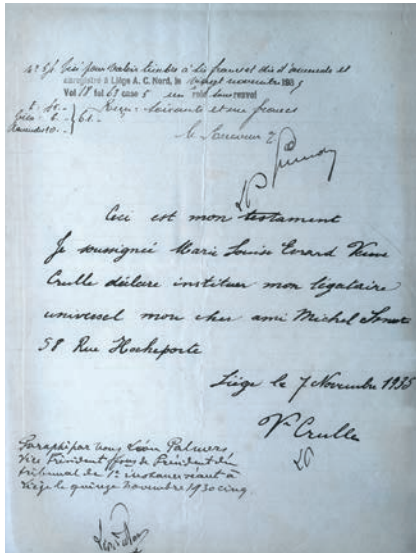 Nº 51 Visé pour valoir timbre à six francs et dix d'amende et
enregistré à Liège A. C. Nord, le vingt novembre 1935
Vol 18 fol 63 case 5 un rôle sans renvoi
Reçu: soixante et un francs
61.-
le Receveur
LP
Ceci est mon testament
Je soussignée Marie Louise Evrard Veuve
Crulle déclare instituer mon légataire
universel mon cher ami Michel
58 Rue Hocheporte
Liége le 7 Novembre 1935
Ve Crulle
LP
Paraphé par nous Léon Palmers
Vice Président ffons de Président du
tribunal de 1e instance séant à
Liège le quinze novembre 1930 cinq